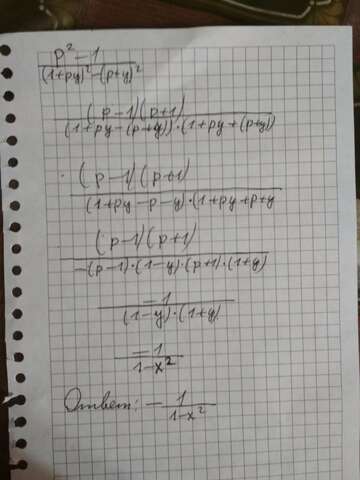 p² - 1
(1+py)² - (p+y)²
(p-1)(p+1)
(1+py-(p+y))·(1+py+(p+y))
(p-1)(p+1)
(1+py-p-y)·(1+py+p+y
(p-1)(p+1)
-(p-1)·(1-y)·(p+1)·(1+y)
-1
(1-y)·(1+y)
-1
1-x²
Ответ: - 1
1-x²